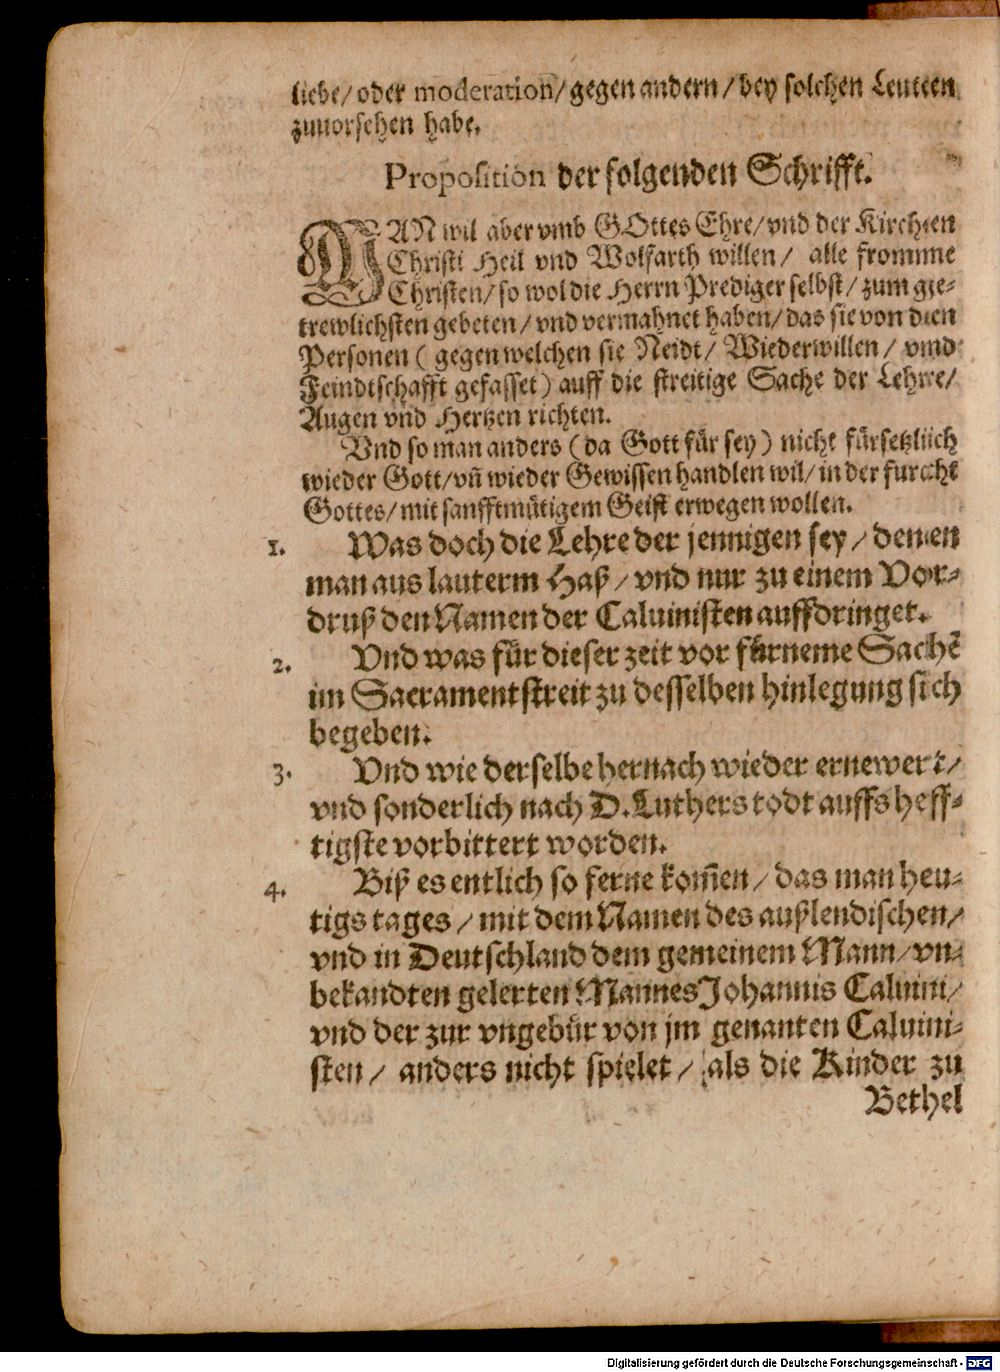 liebe/ oder moderation/ gegen andern/ bey solchen Leuteen
zuuorsehen habe.
Proposition der folgenden Schrifft.
MAN wil aber vmb GOttes Ehre/ vnd der Kirchen
Christi Heil vnd Wolfarth willen/ alle fromme
Christen/ so wol die Herrn Prediger selbst/ zum ge-
trewlichsten gebeten/ vnd vermahnet haben/ das sie von den
Personen ( gegen welchen sie Neidt/ Wiederwillen/ vnnd
Feindtschafft gefasset) auff die streitige Sache der Lehre/
Augen vnd Hertzen richten.
Vnd so man anders ( da Gott für sey) nicht fürsetzlich
wieder Gott/ vñ wieder Gewissen handlen wil/ in der furcht
Gottes/ mit sanfftmütigem Geist erwegen wollen.
1. Was doch die Lehre der jennigen sey/ denen
man aus lauterm Haß/ vnd nur zu einem Vor-
druß den Namen der Caluinisten auffdringet.
2. Vnd was für dieser zeit vor fürneme Sachẽ
im Sacramentstreit zu desselben hinlegung sich
begeben.
3. Vnd wie derselbe hernach wieder ernewert/
vnd sonderlich nach D. Luthers todt auffs heff-
tigste vorbittert worden.
4. Biß es entlich so ferne kom̃en/ das man heu-
tigs tages/ mit dem Namen des außlendischen/
vnd in Deutschland dem gemeinem Mann/ vn-
bekandten gelerten Mannes Johannis Caluini/
vnd der zur vngebür von jm genanten Caluini-
sten/ anders nicht spielet/ als die Kinder zu
Bethel
Digitalisierung gefördert durch die Deutsche Forschungsgemeinschaft - DFG